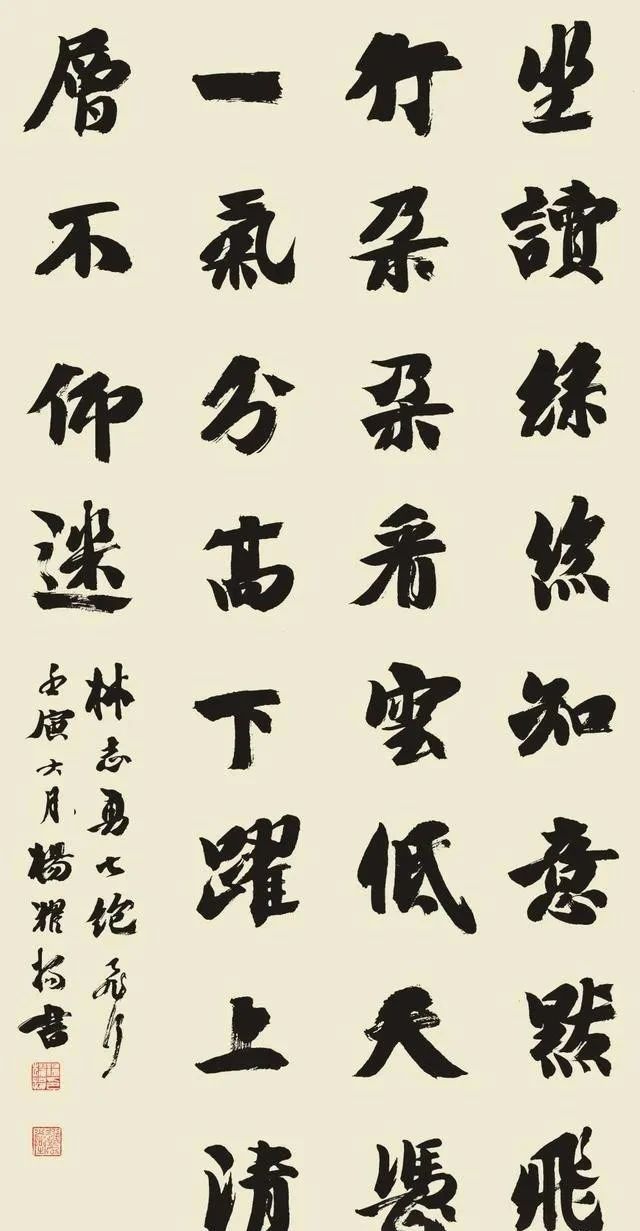 坐讀絲絲知意點飛
行朵朵看雲低天憑
一氣分高下躍上清
層不仰迷
林志勇七絕飛行
壬寅六月楊耀扬書